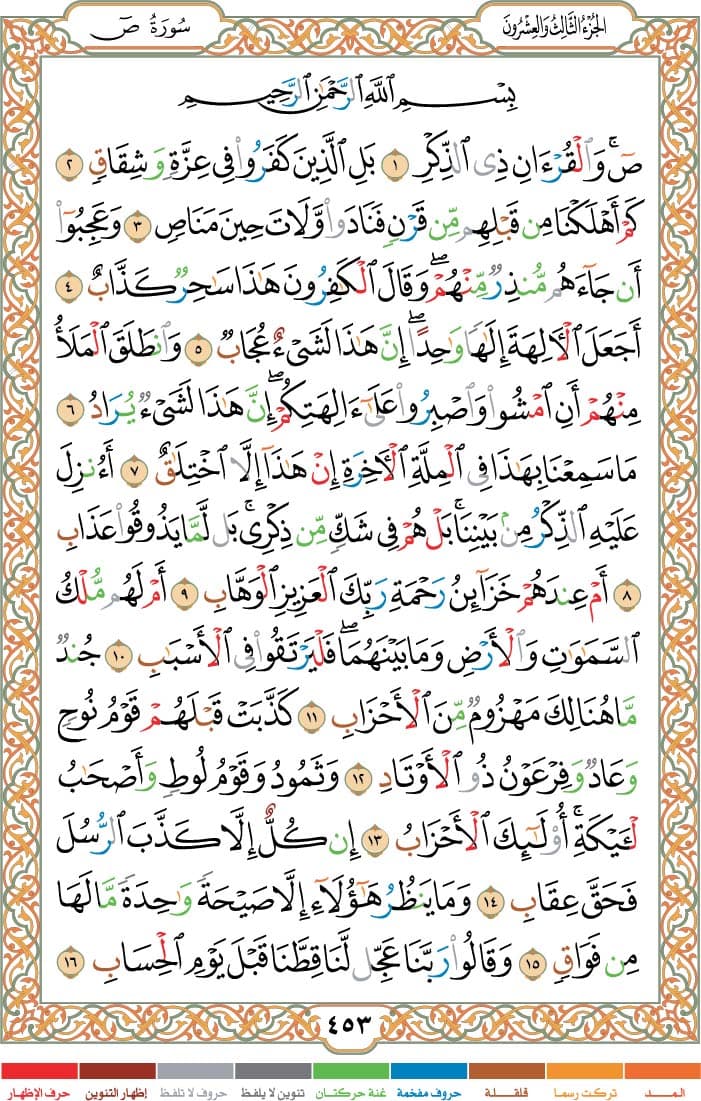 الجُزْءُ الثَّالِثُ وَالعِشْرُونَ
سُورَةُ صٓ
بِسْمِ ٱللَّهِ ٱلرَّحْمَٰنِ ٱلرَّحِيمِ
صٓۚ وَٱلْقُرْءَانِ ذِى ٱلذِّكْرِ ١ بَلِ ٱلَّذِينَ كَفَرُوا۟ فِى عِزَّةٍ وَشِقَاقٍ ٢
كَمْ أَهْلَكْنَا مِن قَبْلِهِم مِّن قَرْنٍ فَنَادَوا۟ وَّلَاتَ حِينَ مَنَاصٍ ٣ وَعَجِبُوٓا۟
أَن جَآءَهُم مُّنذِرٌ مِّنْهُمْۖ وَقَالَ ٱلْكَٰفِرُونَ هَٰذَا سَٰحِرٌ كَذَّابٌ ٤
أَجَعَلَ ٱلْءَالِهَةَ إِلَٰهًا وَٰحِدًاۖ إِنَّ هَٰذَا لَشَىْءٌ عُجَابٌ ٥ وَٱنطَلَقَ ٱلْمَلَأُ
مِنْهُمْ أَنِ ٱمْشُوا۟ وَٱصْبِرُوا۟ عَلَىٰٓ ءَالِهَتِكُمْۖ إِنَّ هَٰذَا لَشَىْءٌ يُرَادُ ٦
مَا سَمِعْنَا بِهَٰذَا فِى ٱلْمِلَّةِ ٱلْءَاخِرَةِ إِنْ هَٰذَآ إِلَّا ٱخْتِلَٰقٌ ٧ أَءُنزِلَ
عَلَيْهِ ٱلذِّكْرُ مِنۢ بَيْنِنَاۚ بَلْ هُمْ فِى شَكٍّ مِّن ذِكْرِىۖ بَل لَّمَّا يَذُوقُوا۟ عَذَابِ
٨ أَمْ عِندَهُمْ خَزَآئِنُ رَحْمَةِ رَبِّكَ ٱلْعَزِيزِ ٱلْوَهَّابِ ٩ أَمْ لَهُم مُّلْكُ
ٱلسَّمَٰوَٰتِ وَٱلْأَرْضِ وَمَا بَيْنَهُمَاۖ فَلْيَرْتَقُوا۟ فِى ٱلْأَسْبَٰبِ ١٠ جُندٌ
مَّا هُنَالِكَ مَهْزُومٌ مِّنَ ٱلْأَحْزَابِ ١١ كَذَّبَتْ قَبْلَهُمْ قَوْمُ نُوحٍ
وَعَادٌ وَفِرْعَوْنُ ذُو ٱلْأَوْتَادِ ١٢ وَثَمُودُ وَقَوْمُ لُوطٍ وَأَصْحَٰبُ
لْـَٔيْكَةِۚ أُو۟لَٰٓئِكَ ٱلْأَحْزَابُ ١٣ إِن كُلٌّ إِلَّا كَذَّبَ ٱلرُّسُلَ
فَحَقَّ عِقَابِ ١٤ وَمَا يَنظُرُ هَٰٓؤُلَآءِ إِلَّا صَيْحَةً وَٰحِدَةً مَّا لَهَا
مِن فَوَاقٍ ١٥ وَقَالُوا۟ رَبَّنَا عَجِّل لَّنَا قِطَّنَا قَبْلَ يَوْمِ ٱلْحِسَابِ ١٦
٤٥٣
المــد تركت رسما قلقلة حروف مفخمة غنة حركتان تنوين لا يلفظ حروف لا تلفظ إظهار التنوين حرف الإظهار